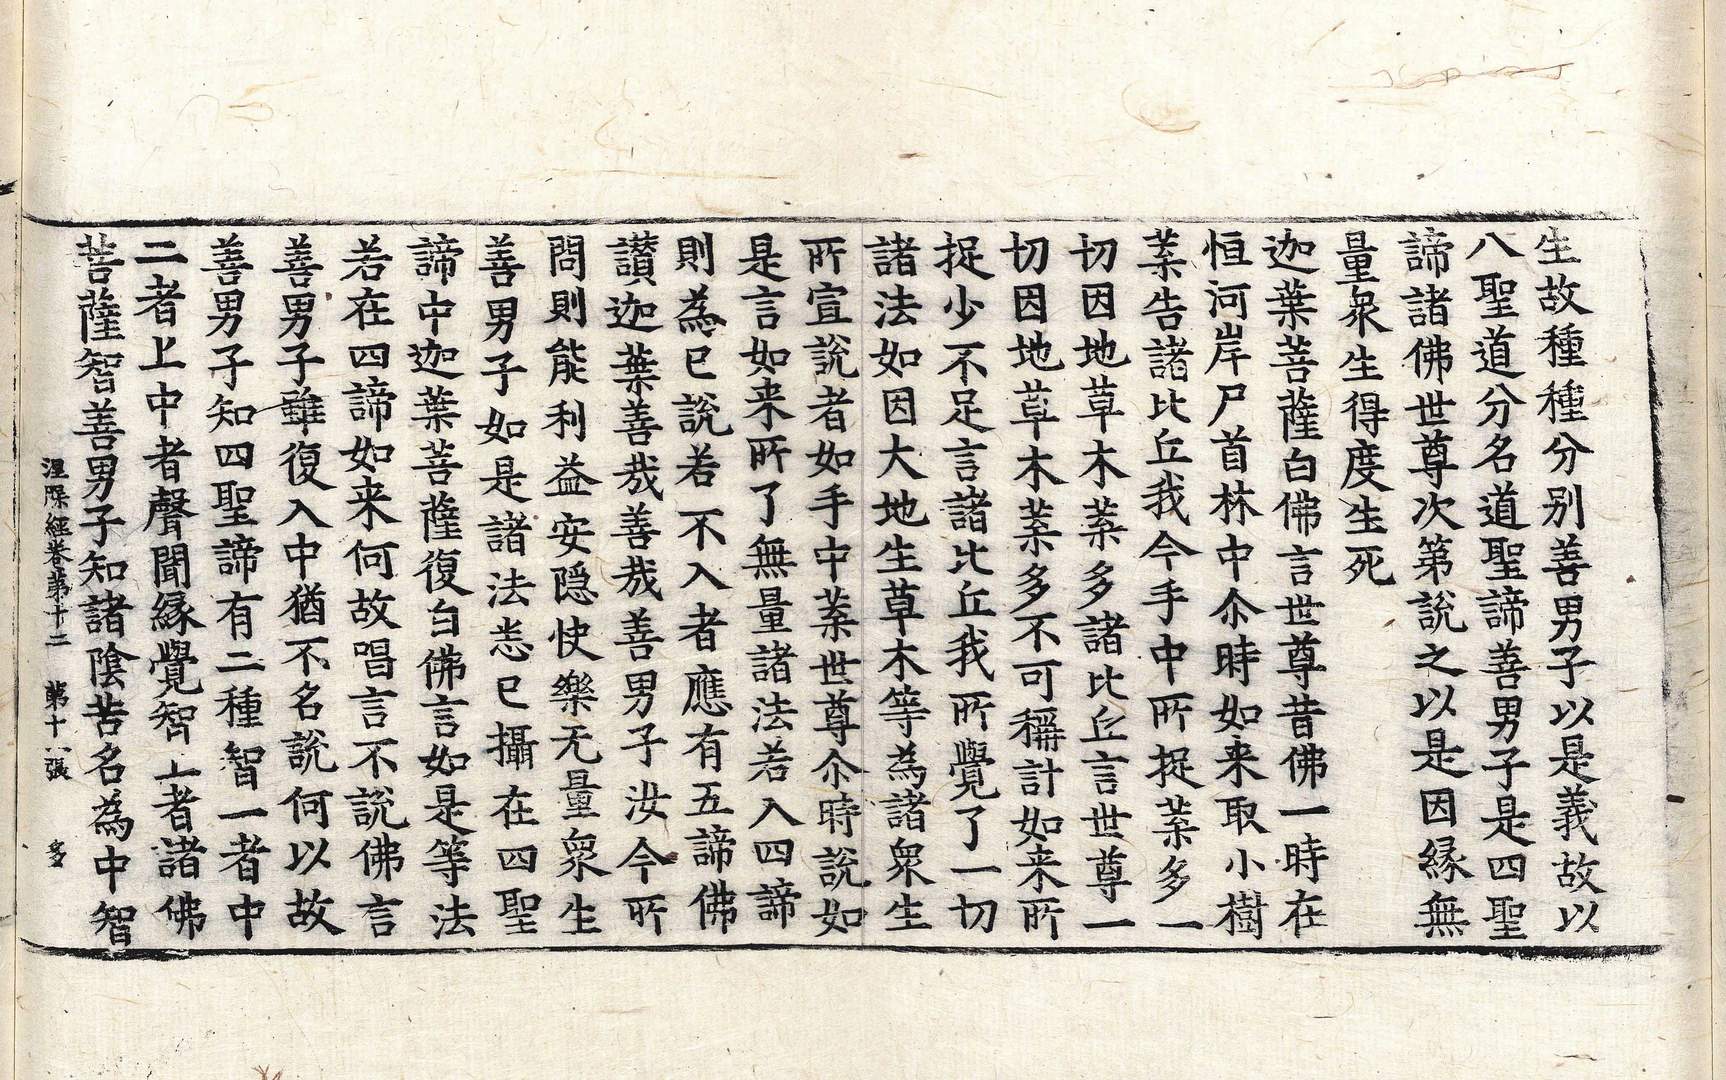 生故種種分別善男子以是義故以
八聖道分名道聖諦善男子是四聖
諦諸佛世尊次第說之以是因縁無
量衆生得度生死
迦葉菩薩白佛言世尊昔佛一時在
恒河岸尸首林中尒時如来取小樹
葉告諸比丘我今手中所捉葉多一
切因地草木葉多諸比丘言世尊一
切因地草木葉多不可稱計如来所
捉少不足言諸比丘我所覺了一切
諸法如因大地生草木等為諸衆生
所宣說者如手中葉世尊尒時說如
是言如来所了無量諸法若入四諦
則為已說若不入者應有五諦佛
讃迦葉善哉善哉善男子汝今所
問則能利益安隠快樂无量衆生
善男子如是諸法悉已攝在四聖
諦中迦葉菩薩復白佛言如是等法
若在四諦如来何故唱言不說佛言
善男子雖復入中猶不名說何以故
善男子知四聖諦有二種智一者中
二者上中者聲聞縁覺智上者諸佛
菩薩智善男子知諸陰苦名為中智
涅槃經卷第十二 第十八張 多